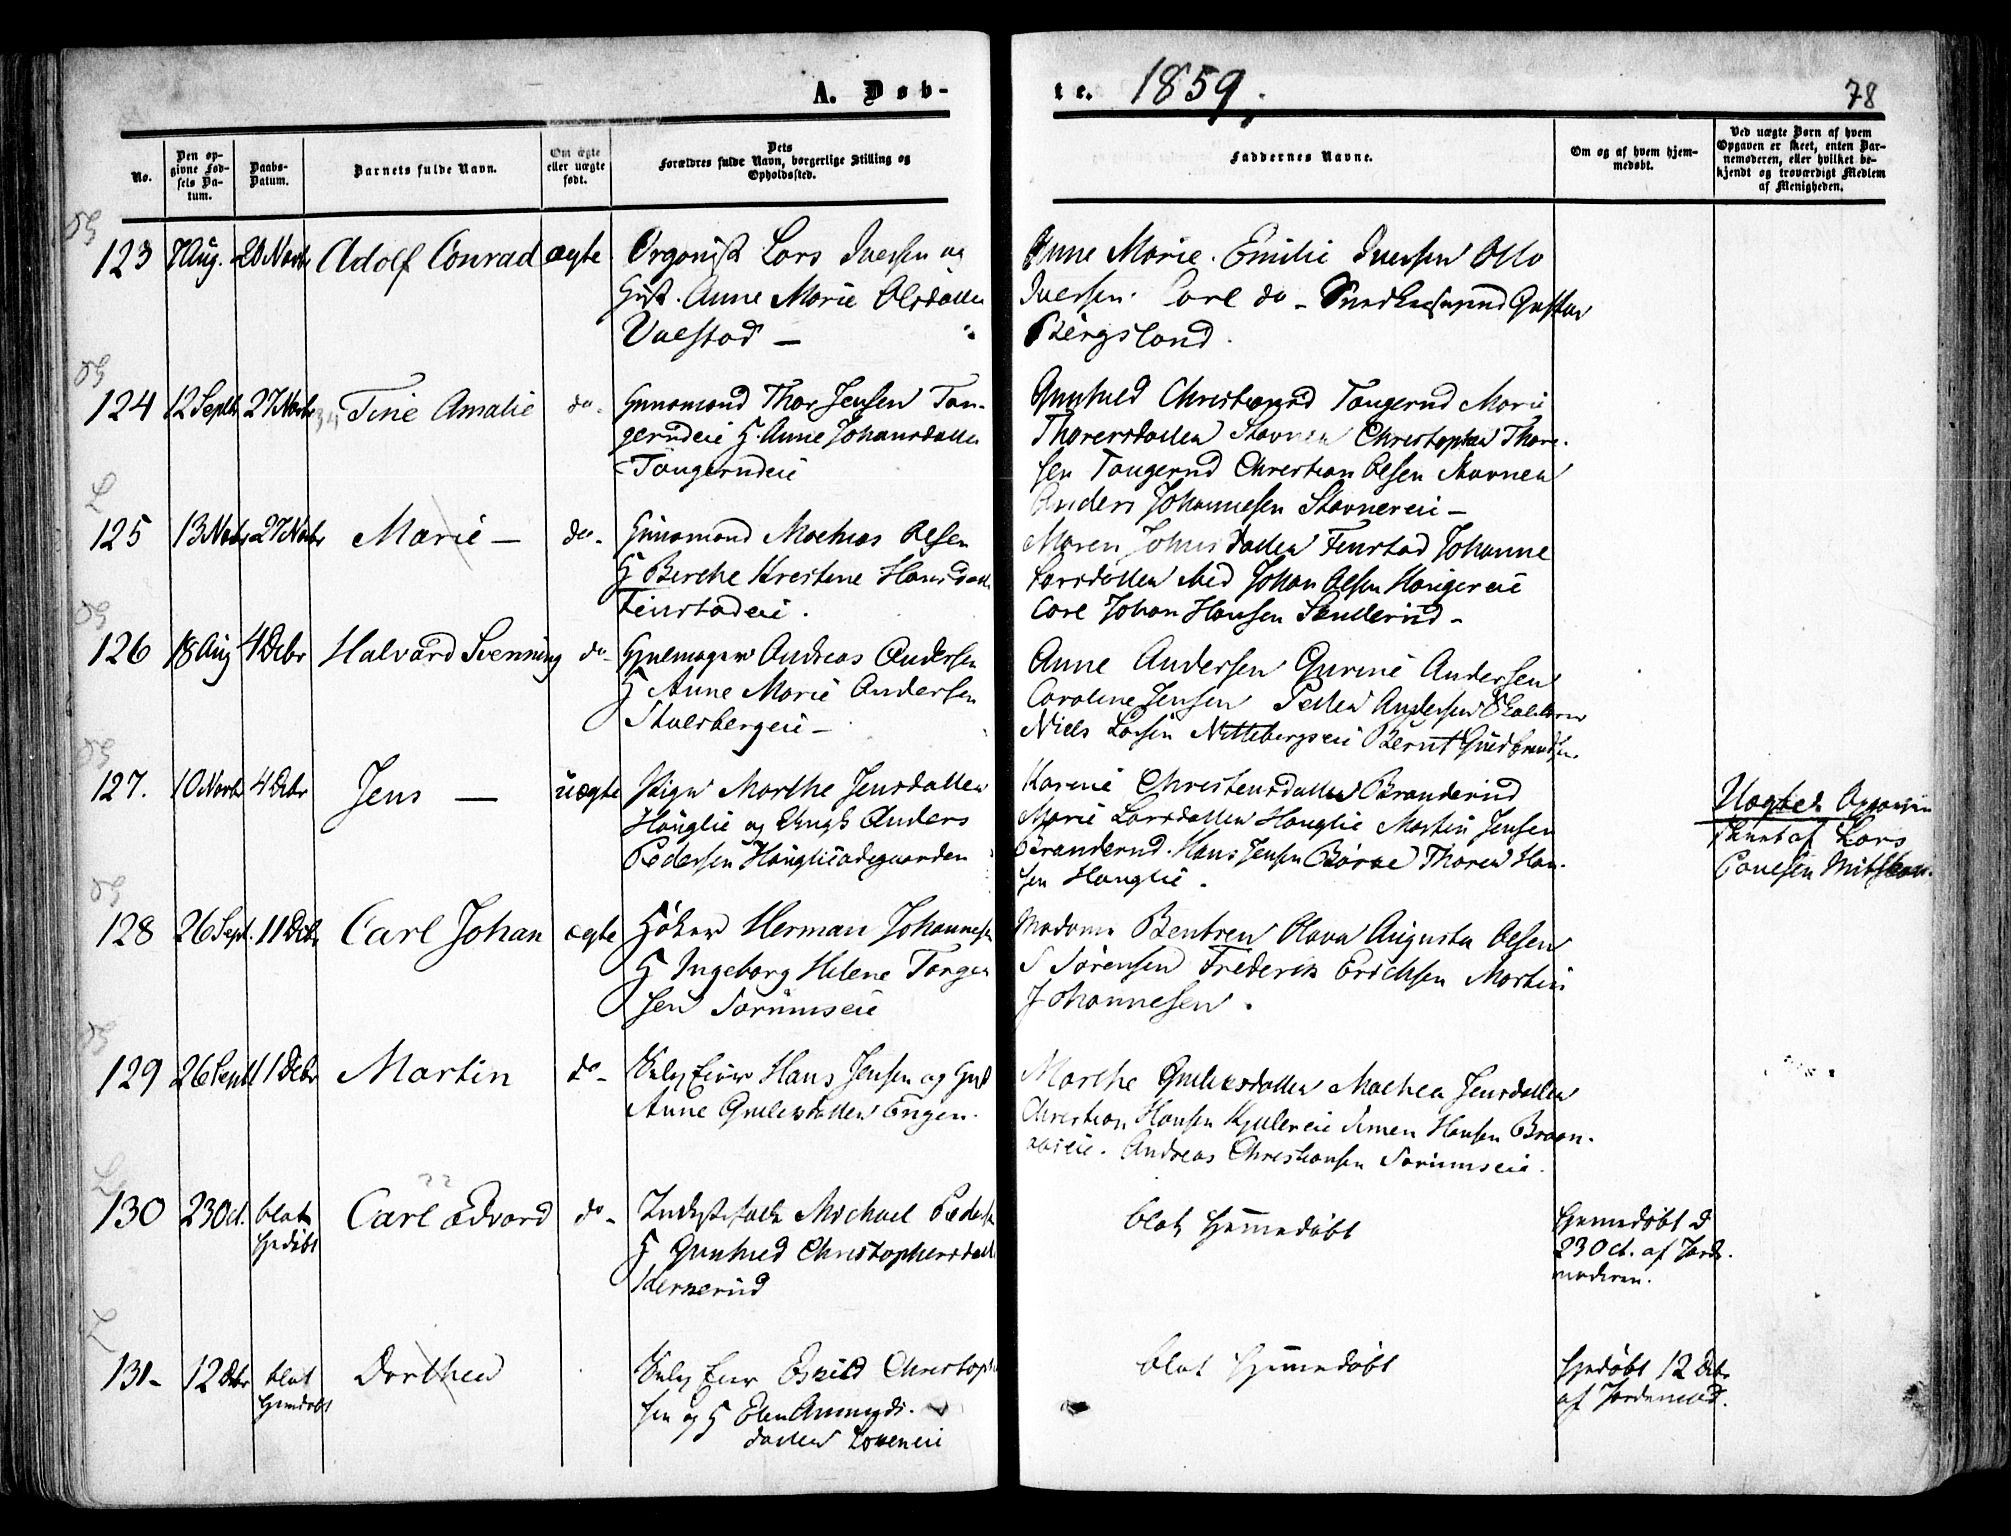 A. Døb-
te. 1859.
78
No.
Den op-
givne Fød-
sels Da-
tum.
Daabs-
Datum.
Barnets fulde Navn.
Om ægte
eller uægte
født.
Dets
Forældres fulde Navn, borgerlige Stilling og
Opholdssted.
Faddernes Navne.
Om og af hvem hjem-
medøbt.
Ved uægte Børn af hvem
Opgaven er skeet, enten Bar-
nemoderen, eller hvilket be-
kjendt og troværdigt Medlem
af Menigheden.
123 7 Aug. 20 Novbr Adolf Conrad ægte Organist Lars Iversen og
Hust. Anne Marie Olsdatter
Valstad —
Anne Marie. Emilie Iversen Otto
Iversen. Carl do - Gustav
Bergsland.
124 12 Septbr 27 Novbr Tine Amalie do- Huusmand Thor Jensen Tan-
gerudeie H. Anne Johansdatter
Tangerudeie
Gunhild Tangerud Marie
Thorersdatter Stovner Christopher Thore-
sen Tangerud Christian Olsen Stovner
Anders Johannesen Stovnereie —
125 13 Novbr 27 Novbr Marie — do- Huusmand Mathias Olsen
H Berthe Kristine Hansdatter
Finstadeie.
Maren Johnsdatter Finstad Johanne
Larsdatter Johan Olsen Haugereie
Carl Johan Hansen Sanderud -
126 18 Aug 4 Debr Halvard Svenning do- Hjulmager Andreas Andersen
H Anne Marie Andersen
Stalsbergeie —
Anne Andersen Gurine Andersen
Caroline Jensen Petter Andersen
Niels Larsen Nittebergseie Bernt Gudbrandsen
127. 10 Novbr 4 Debr Jens — uægte Pigen Marthe Jensdatter
Hauglie og Ungk Anders
Pedersen Hauglieødegaarden
Karine Christensdatter Branderud
Marie Larsdatter Hauglie Martin Jensen
Branderud. Hans Jensen Børke Thorer Han-
sen Hauglie.
Uægted. Opgaven
skeet af Lars
Poulsen
128 26 Sept. 11 Debr Carl Johan ægte Høker Herman Johannesen
H Ingeborg Helene Torger
sen Sørumseie
Madame Bentzen Olava Augusta Olsen
S Sørensen Frederik Erichsen Martin
Johannesen.
129 26 Septbr 11 Debr Martin do- Selveier Hans Jensen og Hust
Anne Gulliksdatter Engen.
Marthe Gulliksdatter Mathea Jensdatter
Christian Hansen Kjullereie Simen Hansen Braan-
aaseie. Andreas Christiansen Sørumseie.
130 23 Oct. blot
Hjdøbt Carl Edvard do- Michael Peders
H Gunhild Christophersdatter

blot Hjemmedøbt
Hjemedøbt d
23 Oct. af Jorde
moderen.
131- 12 Debr blot
Hjemdøbt Dorthea
Selveier Eskild Christoph
sen og H Elen Amunds-
datter
blot Hjemmedøbt
Hjedøbt 12 Debr
af Jordemod.